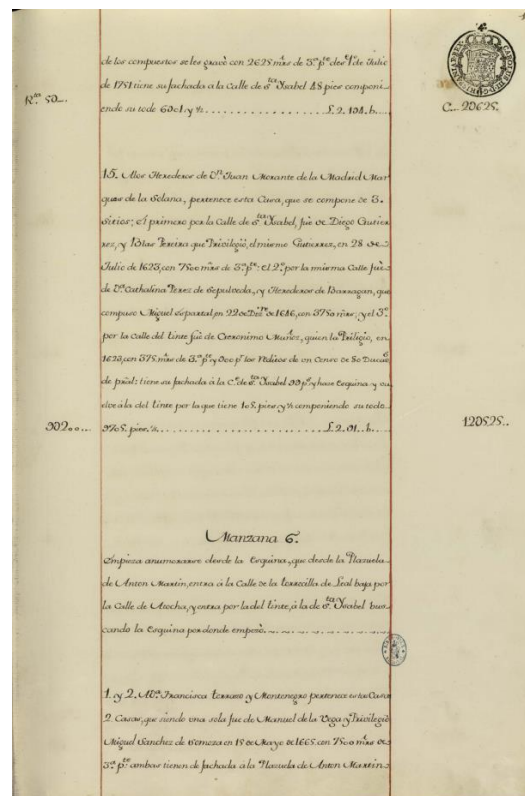 de los compuestos se les gracó con 2625 mrs de 3ª pte desde 1º de Julio
de 1751 tiene su fachada a la Calle de Sta Ysabel 48 pies componi
R.n 50.. endo su todo 6001. y ½ f. 2. 104. b. C... 20625.
15. A los Herederos de Dn. Juan Morante de la Madrid Mar
ques de la Solana, pertenece esta Casa, que se compone de 3.
sitios; el primero por la Calle de Sta Ysabel, fue de Diego Gutier
rez, y Blas Pereira que Privilegió, el mismo Gutierrez, en 28 de
Julio de 1623, con 7500 mrs de 3ª pte: el 2º por la misma Calle fue
de Dª Cathalina Perez de Sepulveda, y Herederos de Barragan, que
compuso Miguel en 22 de Dizre de 1646, con 3750 mrs; y el 3º
por la Calle del Tinte fue de Geronimo Muñoz, quien la Privilegio, en
1623, con 375 mrs de 3ª pte y 300 por los Reditos de un Censo de 80 Ducados
de prinl: tiene su fachada á la Ce de Sta Ysabel 99 ps y hace Esquina y vu
elve á la del Tinte por la que tiene 105. pies y ½ componiendo su todo
3300... 9705. pies. ½ f. 2. 91.. b.. 120525..
Manzana 6.
Empieza a numerarse desde la Esquina, que desde la Plazuela
de Anton Martin, entra á la Calle de la Torrecilla de Leal baja por
la Calle de Atocha, y entra por la del Tinte, á la de Sta Ysabel bus
cando la Esquina por donde empezó.
1. y 2. A Dª Francisca Terrazo y Montenegro pertenece estas Casas
2. Casas, que siendo una sola fue de Manuel de la Vega y Privilegió
Miguel Sanchez de en 15 de Mayo de 1665. con 7500 mrs de
3ª pte ambas tienen de fachada a la Plazuela de Anton Martin